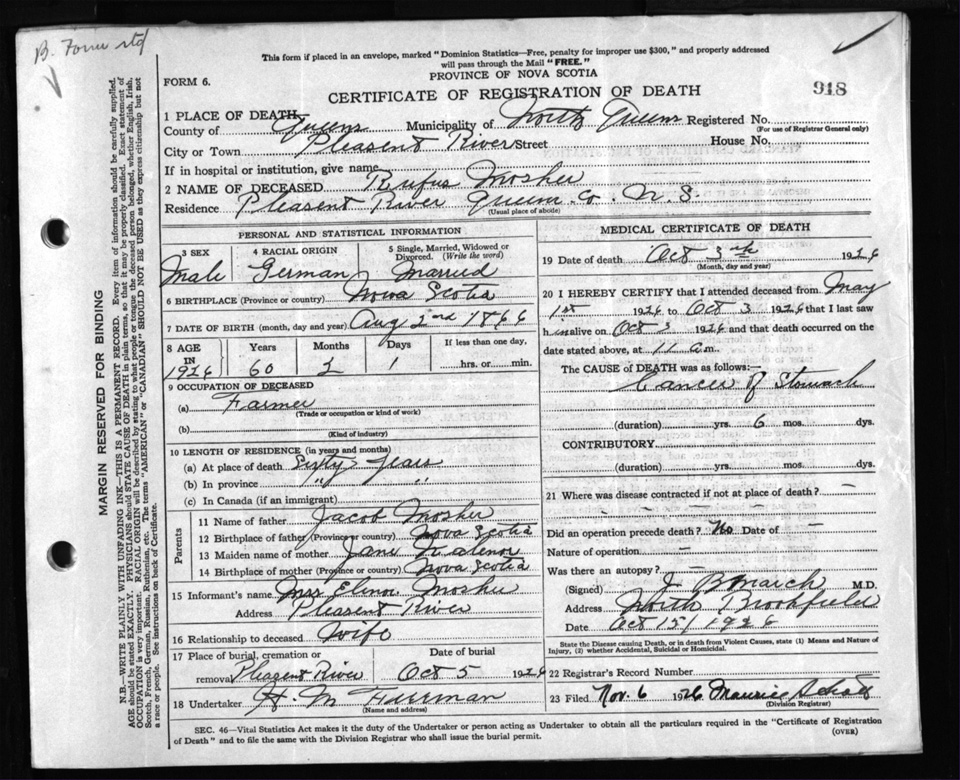 B. Form std
This form if placed in an envelope, marked "Dominion Statistics—Free, penalty for improper use $300," and properly addressed
will pass through the Mail "FREE."
FORM 6.
PROVINCE OF NOVA SCOTIA
CERTIFICATE OF REGISTRATION OF DEATH
918
1 PLACE OF DEATH
County of Queens Municipality of North Queens Registered No.
(For use of Registrar General only)
City or Town Pleasent River Street House No.
If in hospital or institution, give name
2 NAME OF DECEASED Rufus Mosher
Residence Pleasent River Queens Co. N.S.
(Usual place of abode)
PERSONAL AND STATISTICAL INFORMATION
3 SEX 4 RACIAL ORIGIN 5 Single, Married, Widowed or
Divorced. (Write the word)
Male German Married
6 BIRTHPLACE (Province or country) Nova Scotia
7 DATE OF BIRTH (month, day and year) Aug 2nd 1866
8 AGE Years Months Days If less than one day,
IN
1926 60 2 1 hrs. or min.
9 OCCUPATION OF DECEASED
(a) Farmer
(Trade or occupation or kind of work)
(b)
(Kind of industry)
10 LENGTH OF RESIDENCE (in years and months)
(a) At place of death Sixty Years
(b) In province " "
(c) In Canada (if an immigrant)
Parents
11 Name of father Jacob Mosher
12 Birthplace of father (Province or country) Nova Scotia
13 Maiden name of mother Jane
14 Birthplace of mother (Province or country) Nova Scotia
15 Informant's name Mrs Elenor Mosher
Address Pleasent River
16 Relationship to deceased Wife
17 Place of burial, cremation or Date of burial
removal Pleasent River Oct 5 1926
18 Undertaker H M Freeman
(Name and address)
MEDICAL CERTIFICATE OF DEATH
19 Date of death Oct 3rd 1926
(Month, day and year)
20 I HEREBY CERTIFY that I attended deceased from May
1st 1926 to Oct 3 1926 that I last saw
him alive on Oct 3 1926 and that death occurred on the
date stated above, at 11 a.m.
The CAUSE of DEATH was as follows:—
Cancer of Stomach
(duration) yrs. 6 mos. dys.
CONTRIBUTORY
(duration) yrs. mos. dys.
21 Where was disease contracted if not at place of death? —
Did an operation precede death? No Date of —
Nature of operation —
Was there an autopsy? —
(Signed) J B March M.D.
Address North Brookfield
Date Oct 15/1926
State the Disease causing Death, or in death from Violent Causes, state (1) Means and Nature of
Injury, (2) whether Accidental, Suicidal or Homicidal.
22 Registrar's Record Number
23 Filed Nov. 6 1926 Maurice
(Division Registrar)
SEC. 46—Vital Statistics Act makes it the duty of the Undertaker or person acting as Undertaker to obtain all the particulars required in the "Certificate of Registration
of Death" and to file the same with the Division Registrar who shall issue the burial permit.
(OVER)
MARGIN RESERVED FOR BINDING
N.B.—WRITE PLAINLY WITH UNFADING INK—THIS IS A PERMANENT RECORD. Every item of information should be carefully supplied.
AGE should be stated EXACTLY. PHYSICIANS should STATE CAUSE OF DEATH in plain terms, so that it may be properly classified. Exact statement of
OCCUPATION is very important. RACIAL ORIGIN will be described by stating to what people or tongue the deceased person belonged, whether English, Irish,
Scotch, French, German, Russian, Ruthenian, etc. The terms "AMERICAN" or "CANADIAN" SHOULD NOT BE USED as they express citizenship but not
a race or people. See instructions on back of Certificate.